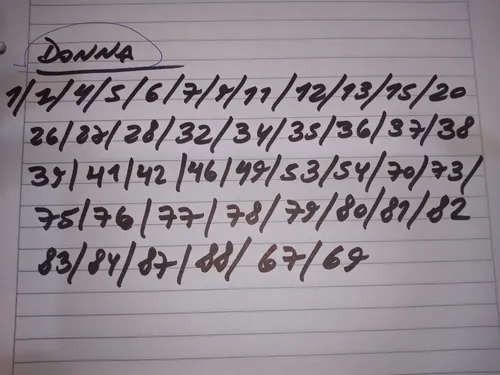 DONNA
1/2/4/5/6/7/9/11/12/13/15/20
26/27/28/32/34/35/36/37/38
39/41/42/46/49/53/54/70/73/
75/76/77/78/79/80/81/82
83/84/87/88/67/69